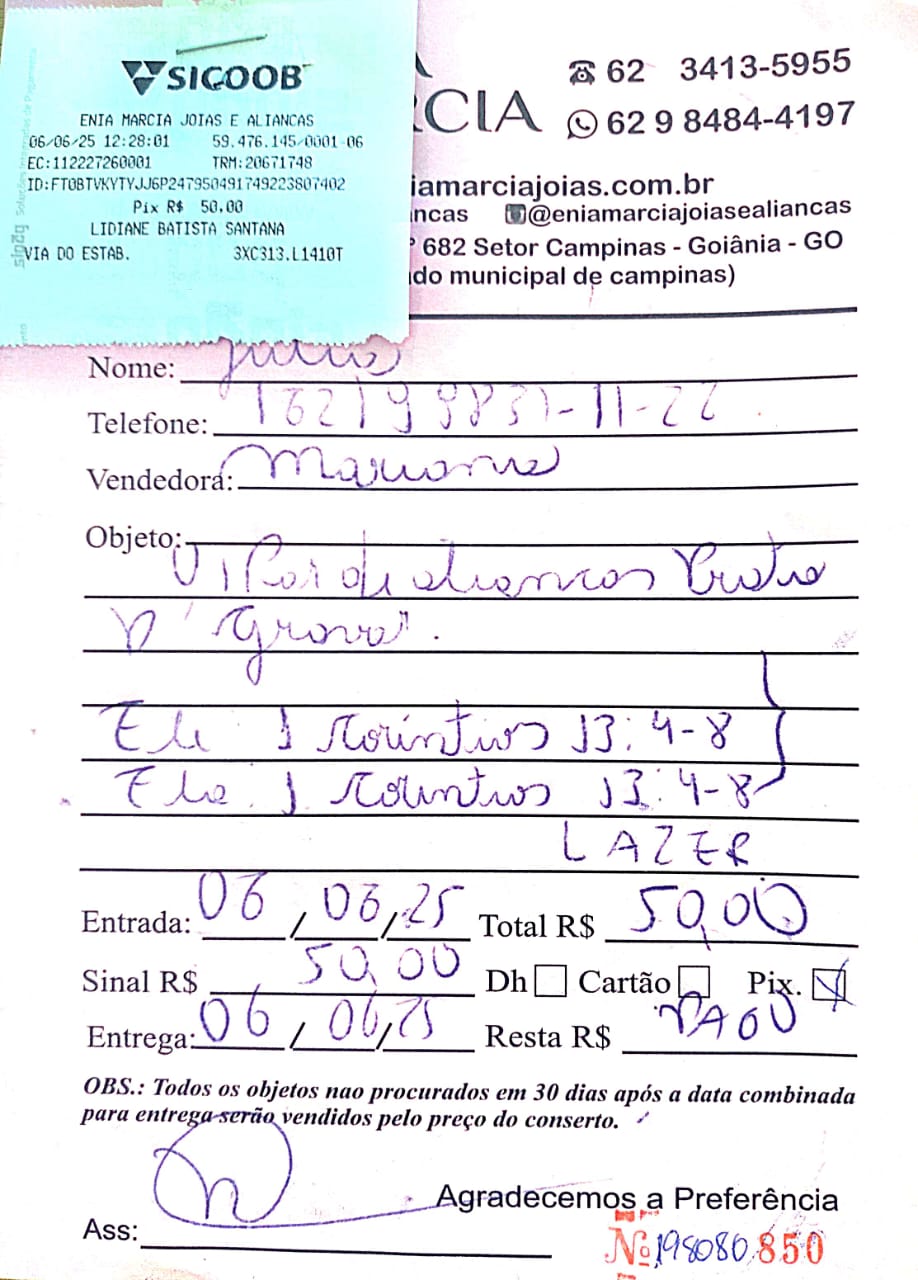 SICOOB
ENIA MARCIA JOIAS E ALIANCAS
06/06/25 12:28:01 59.476.145/0001-06
EC:112227260001 TRM:20671748
ID:FT0BTVKYTYJJ6P247950491749223807402
Pix R$ 50.00
LIDIANE BATISTA SANTANA
VIA DO ESTAB. 3XC313.L1410T
sipag Soluções Inteligentes de Pagamento
62 3413-5955
RCIA 62 9 8484-4197
iamarciajoias.com.br
ncas @eniamarciajoiasealiancas
682 Setor Campinas - Goiânia - GO
do municipal de campinas)
Nome:
Telefone: (62) 99831-11-22
Vendedora: Mariana
Objeto:
01 Par de alianças Prata
P/ Gravar.
Ele 1 Coríntios 13:4-8
Ela. 1 Coríntios 13:4-8
LAZER
Entrada: 06/06/25 Total R$ 50,00
Sinal R$ 50,00 Dh Cartão Pix.
Entrega: 06/06/25 Resta R$ PAGO
OBS.: Todos os objetos nao procurados em 30 dias após a data combinada
para entrega serão vendidos pelo preço do conserto.
Agradecemos a Preferência
Ass:
Nº 198080 850